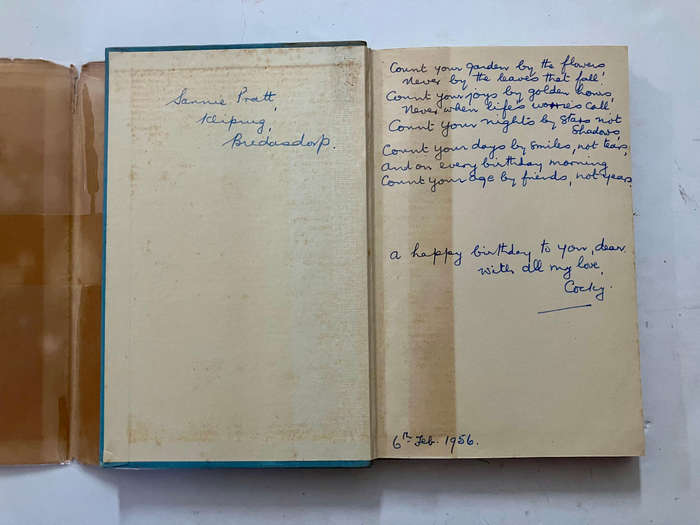 Sannie Pratt,
Kliprug,
Bredasdorp.
Count your garden by the flowers,
Never by the leaves that fall,
Count your joys by golden hours,
Never when life's worries call,
Count your nights by stars not
Shadows,
Count your days by smiles, not tears,
And on every birthday morning
Count your age by friends, not years.
a happy birthday to you, dear
with all my love,
Cocky.
6th Feb. 1956.